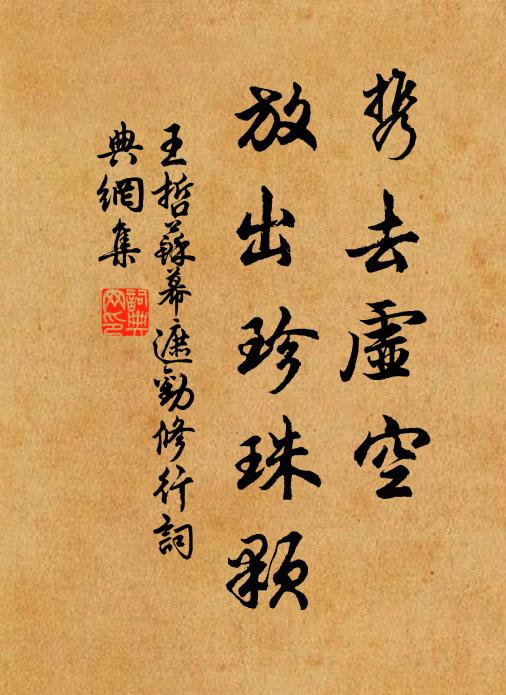 携去虛空
放出珍珠顆
王哲蘇幕遮勸修行詞
典網集
詞典網印